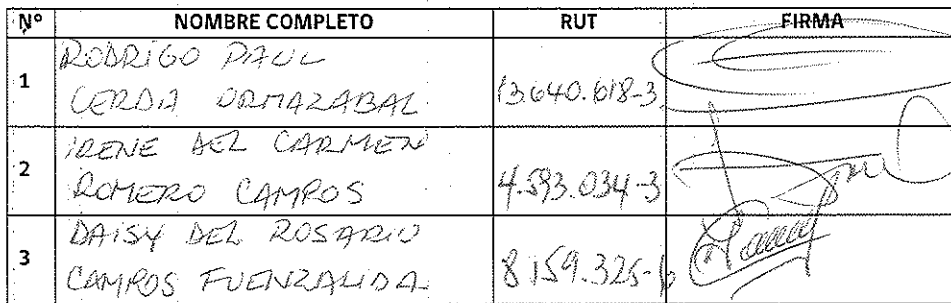 Nº NOMBRE COMPLETO RUT FIRMA
1 RODRIGO PAUL
CERDA ORMAZABAL 13.640.618-3
2 IRENE DEL CARMEN
ROMERO CAMPOS 4.593.034-3
3 DAISY DEL ROSARIO
CAMPOS FUENZALIDA 8.159.325-